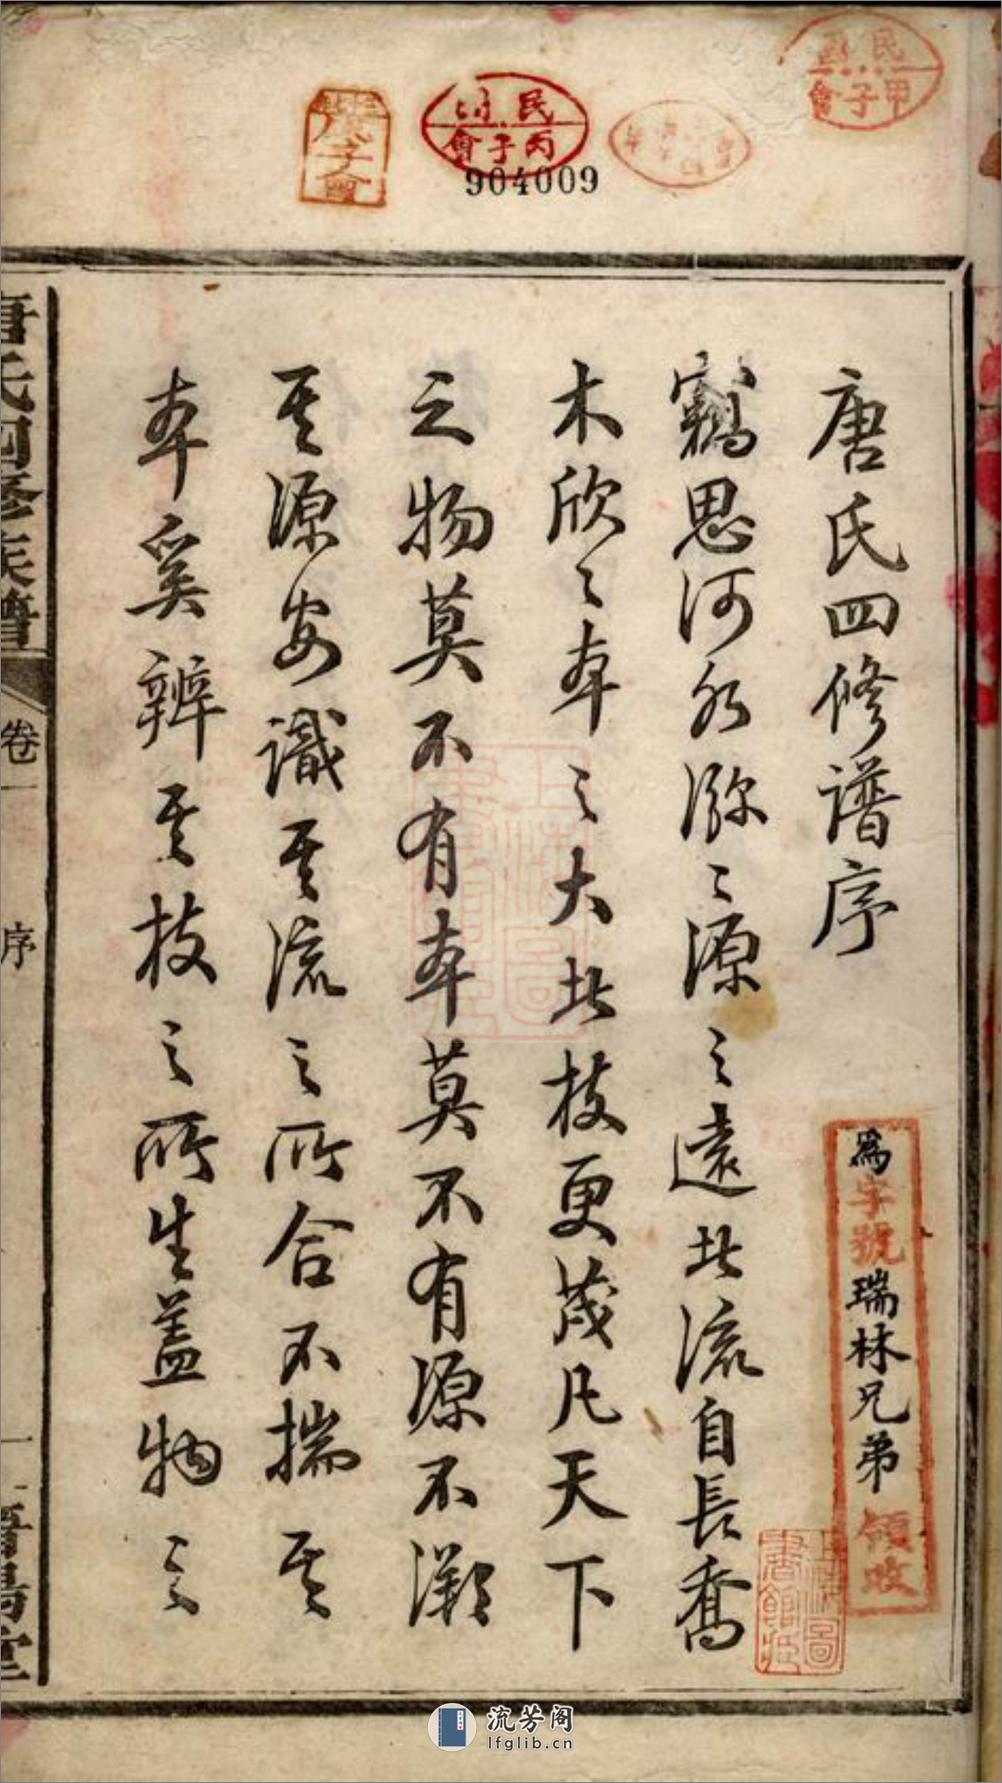 民國
甲子會
民國
丙子會
904009
唐氏四修譜序
竊思河水瀰〻源之遠北流自長喬
木欣〻本之大北枝更茂凡天下
之物莫不有本莫不有源不溯
其源安識其流之所合不揣其
本奚辨其枝之所生蓋物之
為字號瑞林兄弟領收
上海圖書館藏
唐氏四修族譜
卷一
序
一
晋陽堂
流芳阁
lfglib.cn